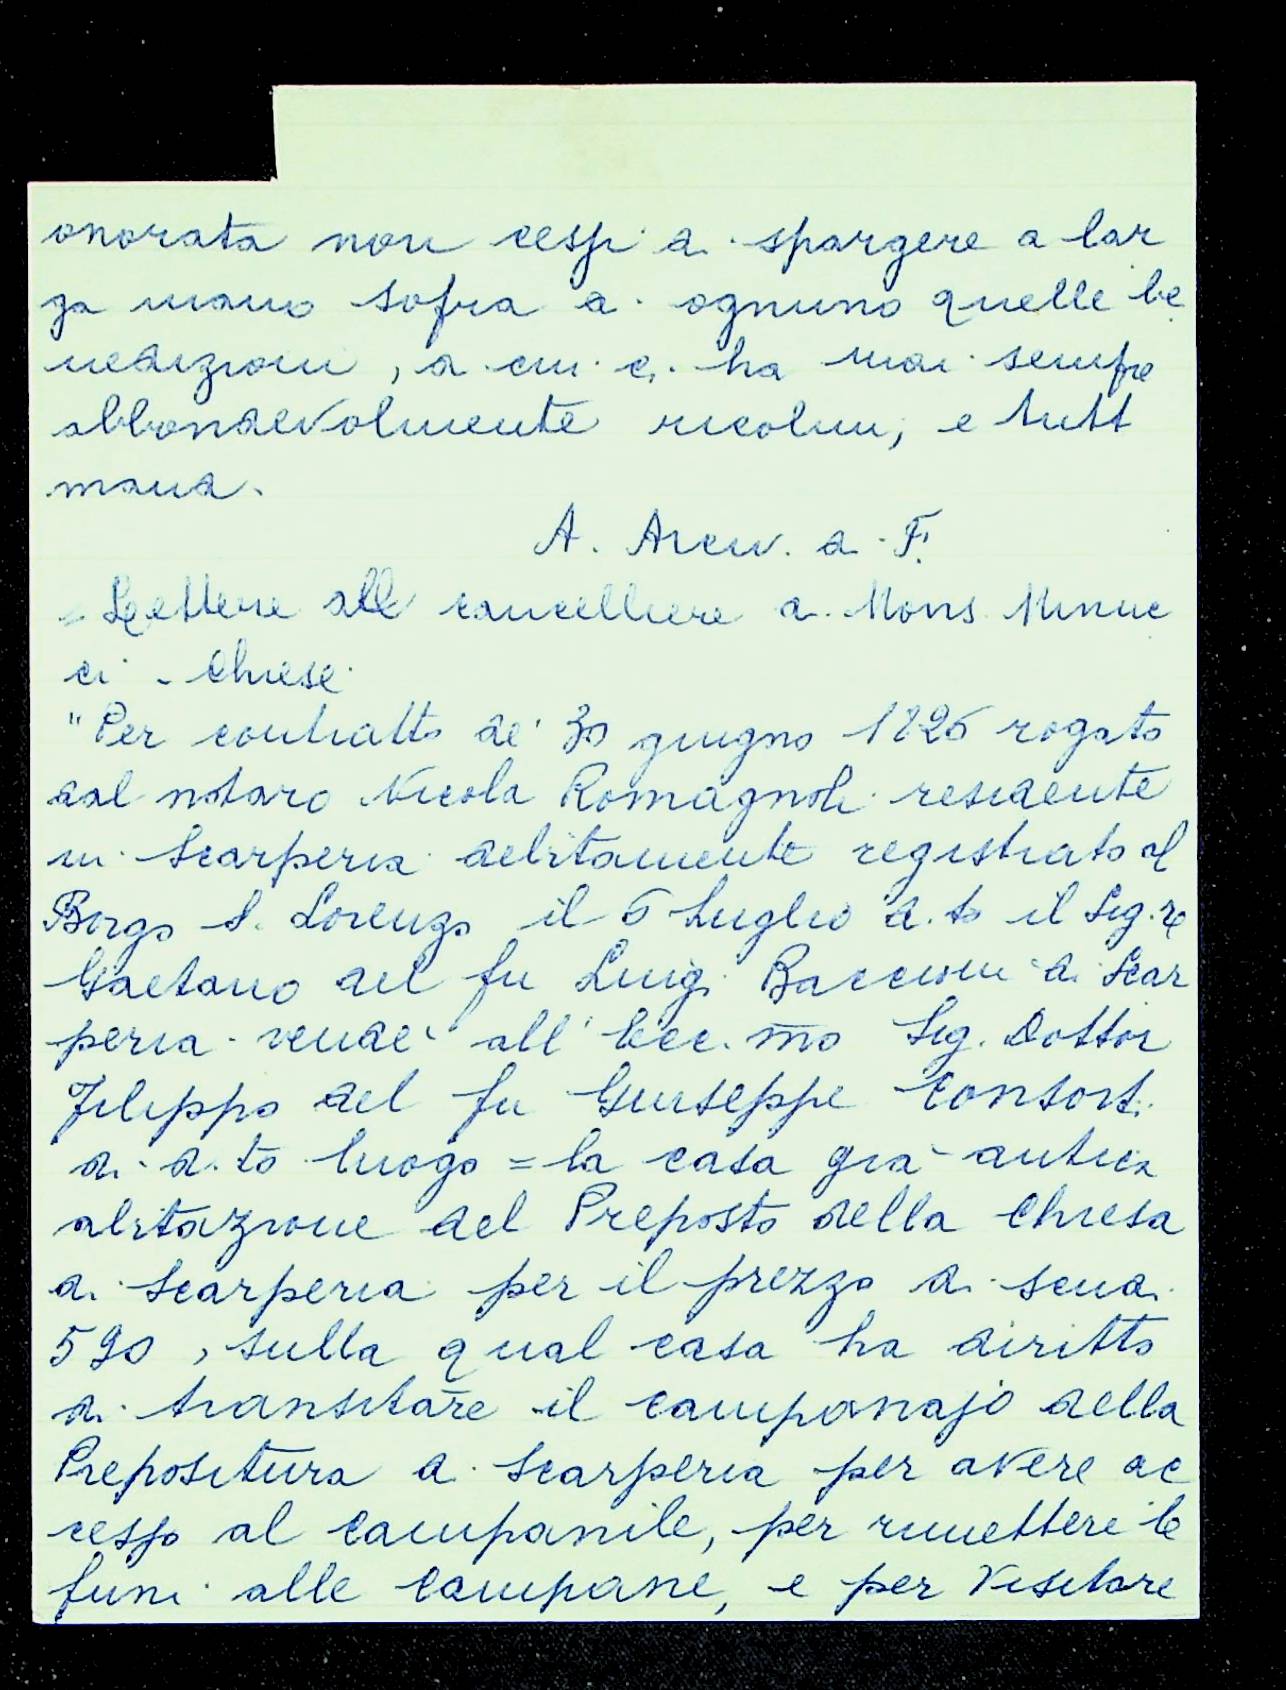 onorata non cessi di spargere a lar
ga mano sopra di ognuno quelle be
nedizioni, di cui ci ha mai sempre
abbondevolmente ricolmi, e tutt
mana.
A. Arciv. di F.
= Lettere all cancelliere di Mons. Minuc
ci - Chiese
"Per contratto de' 30 giugno 1826 rogato
dal notaro Nicola Romagnoli residente
in Scarperia debitamente registrato al
Borgo S. Lorenzo il 6 Luglio d.to il Sig.re
Gaetano del fu Luigi Baccioni di Scar
peria vendè all' Ecc.mo Sig. Dottor
Filippo del fu Giuseppe Consorti
di d.to luogo = la casa già antica
abitazione del Preposto della Chiesa
di Scarperia per il prezzo di scudi
590, sulla qual casa ha diritto
di transitare il campanajo della
Prepositura di Scarperia per avere ac
cesso al campanile, per rimettere le
funi alle Campane, e per visitare